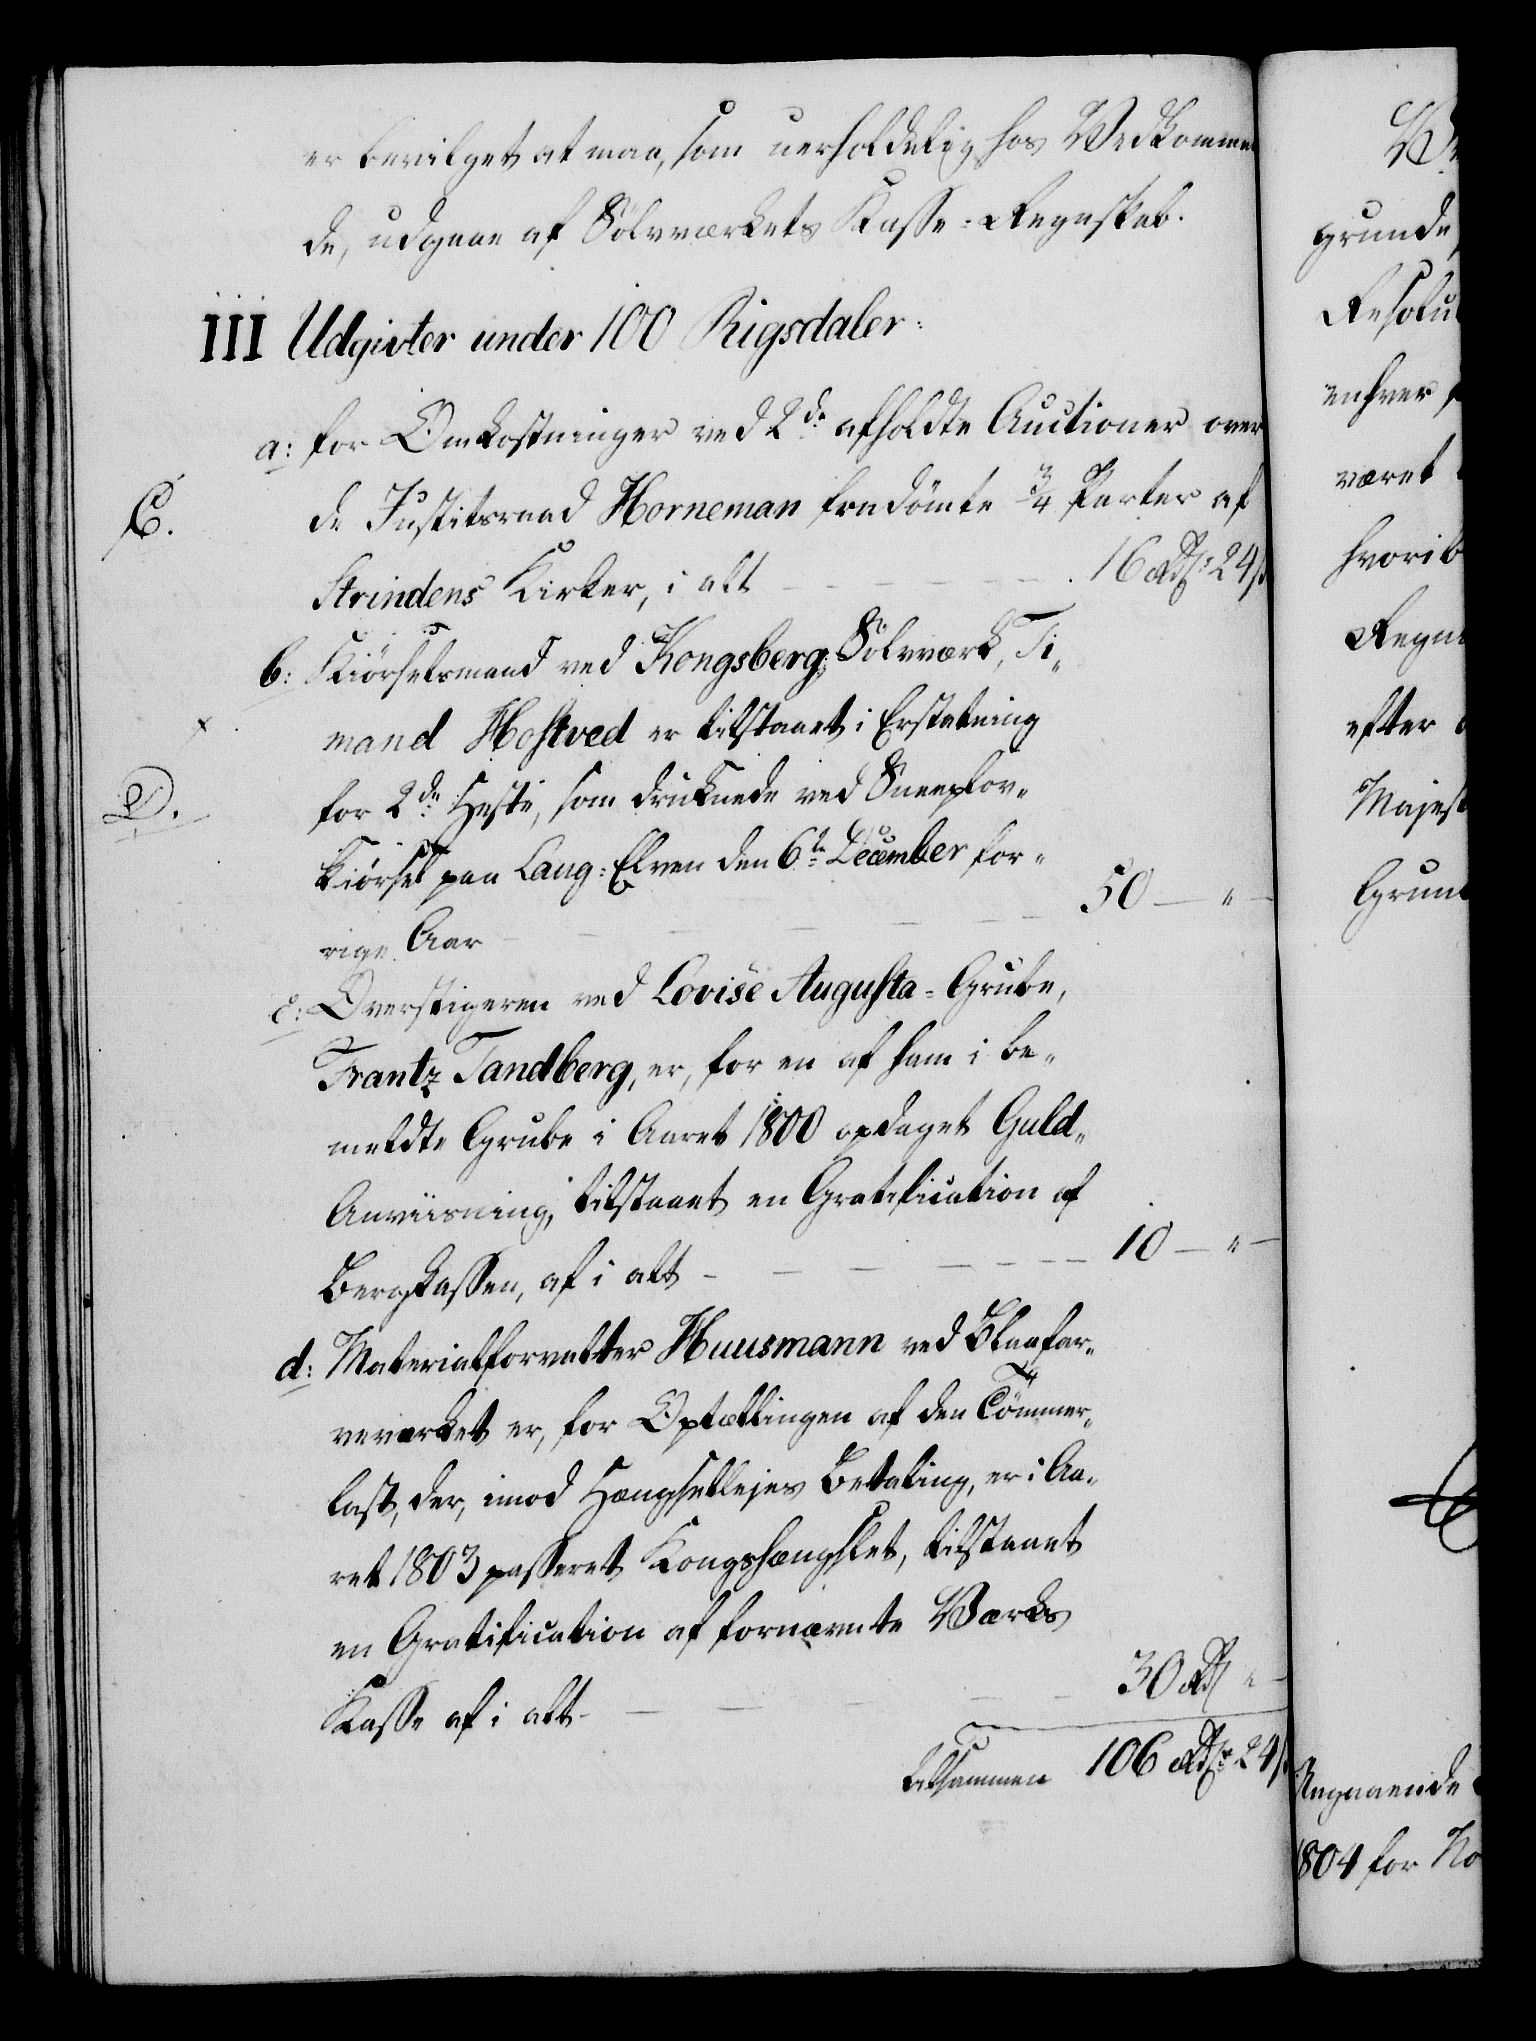 er bevilget at maa, som uerholdelig hos Vedkommen
de, udgaae af Sölvværkets Kasse-Regnskab.
III Udgivter under 100 Rigsdaler:
a: for Omkostninger ved 2de afholdte Auctioner over
C. de Justitsraad Horneman fradömte 3/4 Parter af
Strindens Kirker, i alt 16 Rdr 24 s
b: Kiörselsmand ved Kongsberg Sölvværk, Ti-
mand Hostved er tilstaaet i Erstatning
D. for 2de Heste, som druknede ved Sneeplov-
kiörsel paa Laug-Elven den 6te December for-
rige Aar 50 - " -
c: Overstigeren ved Lovise Augusta-Grube,
Frantz Tandberg, er, for en af ham i be-
meldte Grube i Aaret 1800 opdaget Guld-
Anviisning, tilstaaet en Gratification af
Bergkassen, af i alt 10 - " -
d: Materialforvalter Huusmann ved Blaafar-
veværket er, for Optællingen af den Tömmer-
last, der, imod Hængsellejes Betaling, er i Aa-
ret 1803 passeret Kongshængslet, tilstaaet
en Gratification af fornævnte Værks
Kasse af i alt 30 Rd " -
tilsammen 106 Rdr 24 s
grunde
Resolu
enhver
været
hvori
Regn
efter
Majest
Grun
Angaaende
1804 for No